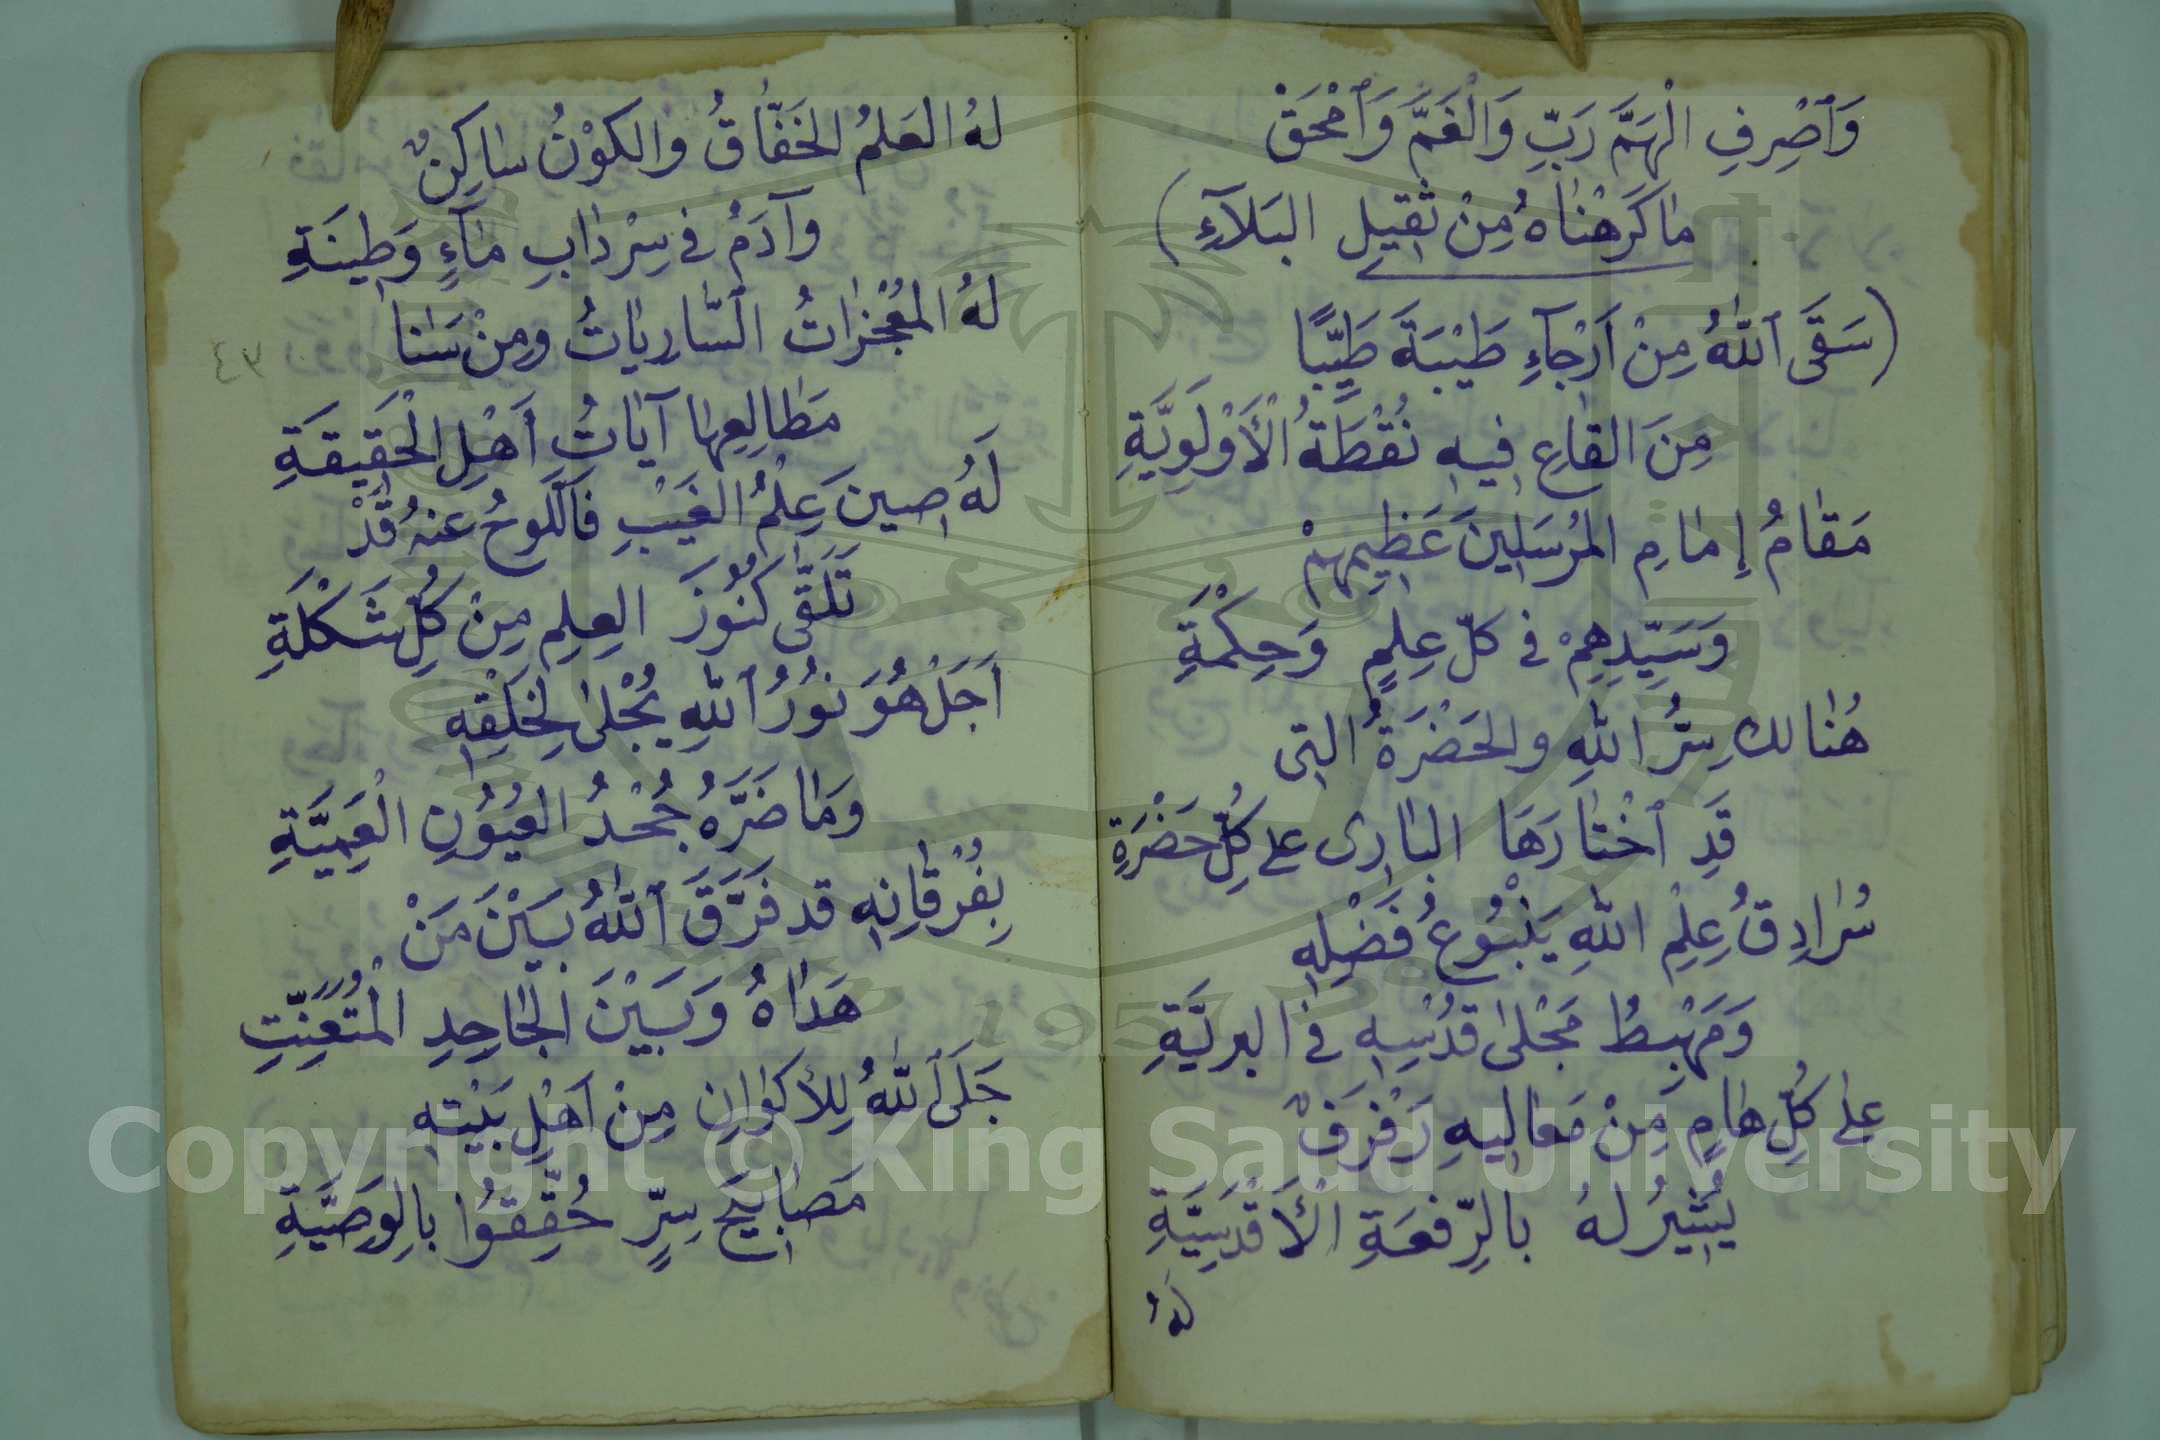 وَٱصْرِفِ الْهَمَّ رَبِّ وَالْغَمَّ وَٱمْحَقْ
مٰا كَرَهْنٰاهُ مِنْ ثَقِيلِ البَلآءِ)
(سَقَى ٱللّٰهُ مِنْ اَرْجآءِ طَيْبَةَ طَيِّبًا
مِنَ القٰاعِ فِيهِ نُقْطَةُ الْأَوْلَوِيَّةِ
مَقٰامُ إِمٰامِ المُرْسَلِينَ عَظِيمِهِمْ
وَسَيِّدِهِمْ في كلِّ عِلِمٍ وَحِكْمَةِ
هُنٰالك سِرُّ اللّٰهِ والحَضْرَةُ التى
قَدِ ٱخْتٰارَهَا البٰارِى على كُلِّ حَضْرَةِ
سُرٰادِقُ عِلِمْ اللّٰهِ يَنْبُوعُ فَضْلِهِ
وَمَهْبِطُ مَجْلىٰ قدُسِهِ في البريَّةِ
علىٰ كُلِّ هٰامٍ مِنْ مَعٰالِيهِ رَفْرَفٌ
يُشِيرُ لهُ بالرِّفعَةِ الْأَقْدَسِيَّةِ
لهُ
لهُ العَلمُ الخَفّٰاقُ والكوْنُ سٰاكِنٌ
وآدَمُ في سِرْدٰابِ مٰآءٍ وَطِينَةِ
لهُ المُعْجِزٰاتُ السّٰارِيٰاتُ ومِنْ سَنٰا
٤٣
مَطٰالِعِهٰا آيٰاتُ اَهْلِ الْحَقِيقَةِ
لَهُ صِينَ عِلْمُ الغَيْبِ فَاللَّوحُ عنهُ قَدْ
تَلَقّٰى كَنُوزَ العِلِمِ مِنْ كُلِّ شَكْلَةِ
اَجَلْ هُوَ نُورُ ٱللّٰهِ يُجْلىٰ لِخَلْقِهِ
وَمٰا ضَرَّهُ جُحْدُ العُيُونِ الْعَمِيَّةِ
بِفُرْقٰانِهِ قد فَرَّقَ ٱللّٰهُ بَيْنَ مَنْ
هَدٰاهُ وَبَيْنَ الجٰاحِدِ الْمُتَعَنِّتِ
جَلَى ٱللّٰهُ لِلأكَوٰانِ مِنْ اَهْلِ بَيْتِهِ
مَصٰابِيحَ سِرٍّ حُقِّقُوا بِالوَصِيَّةِ
Copyright © King Saud University
1957